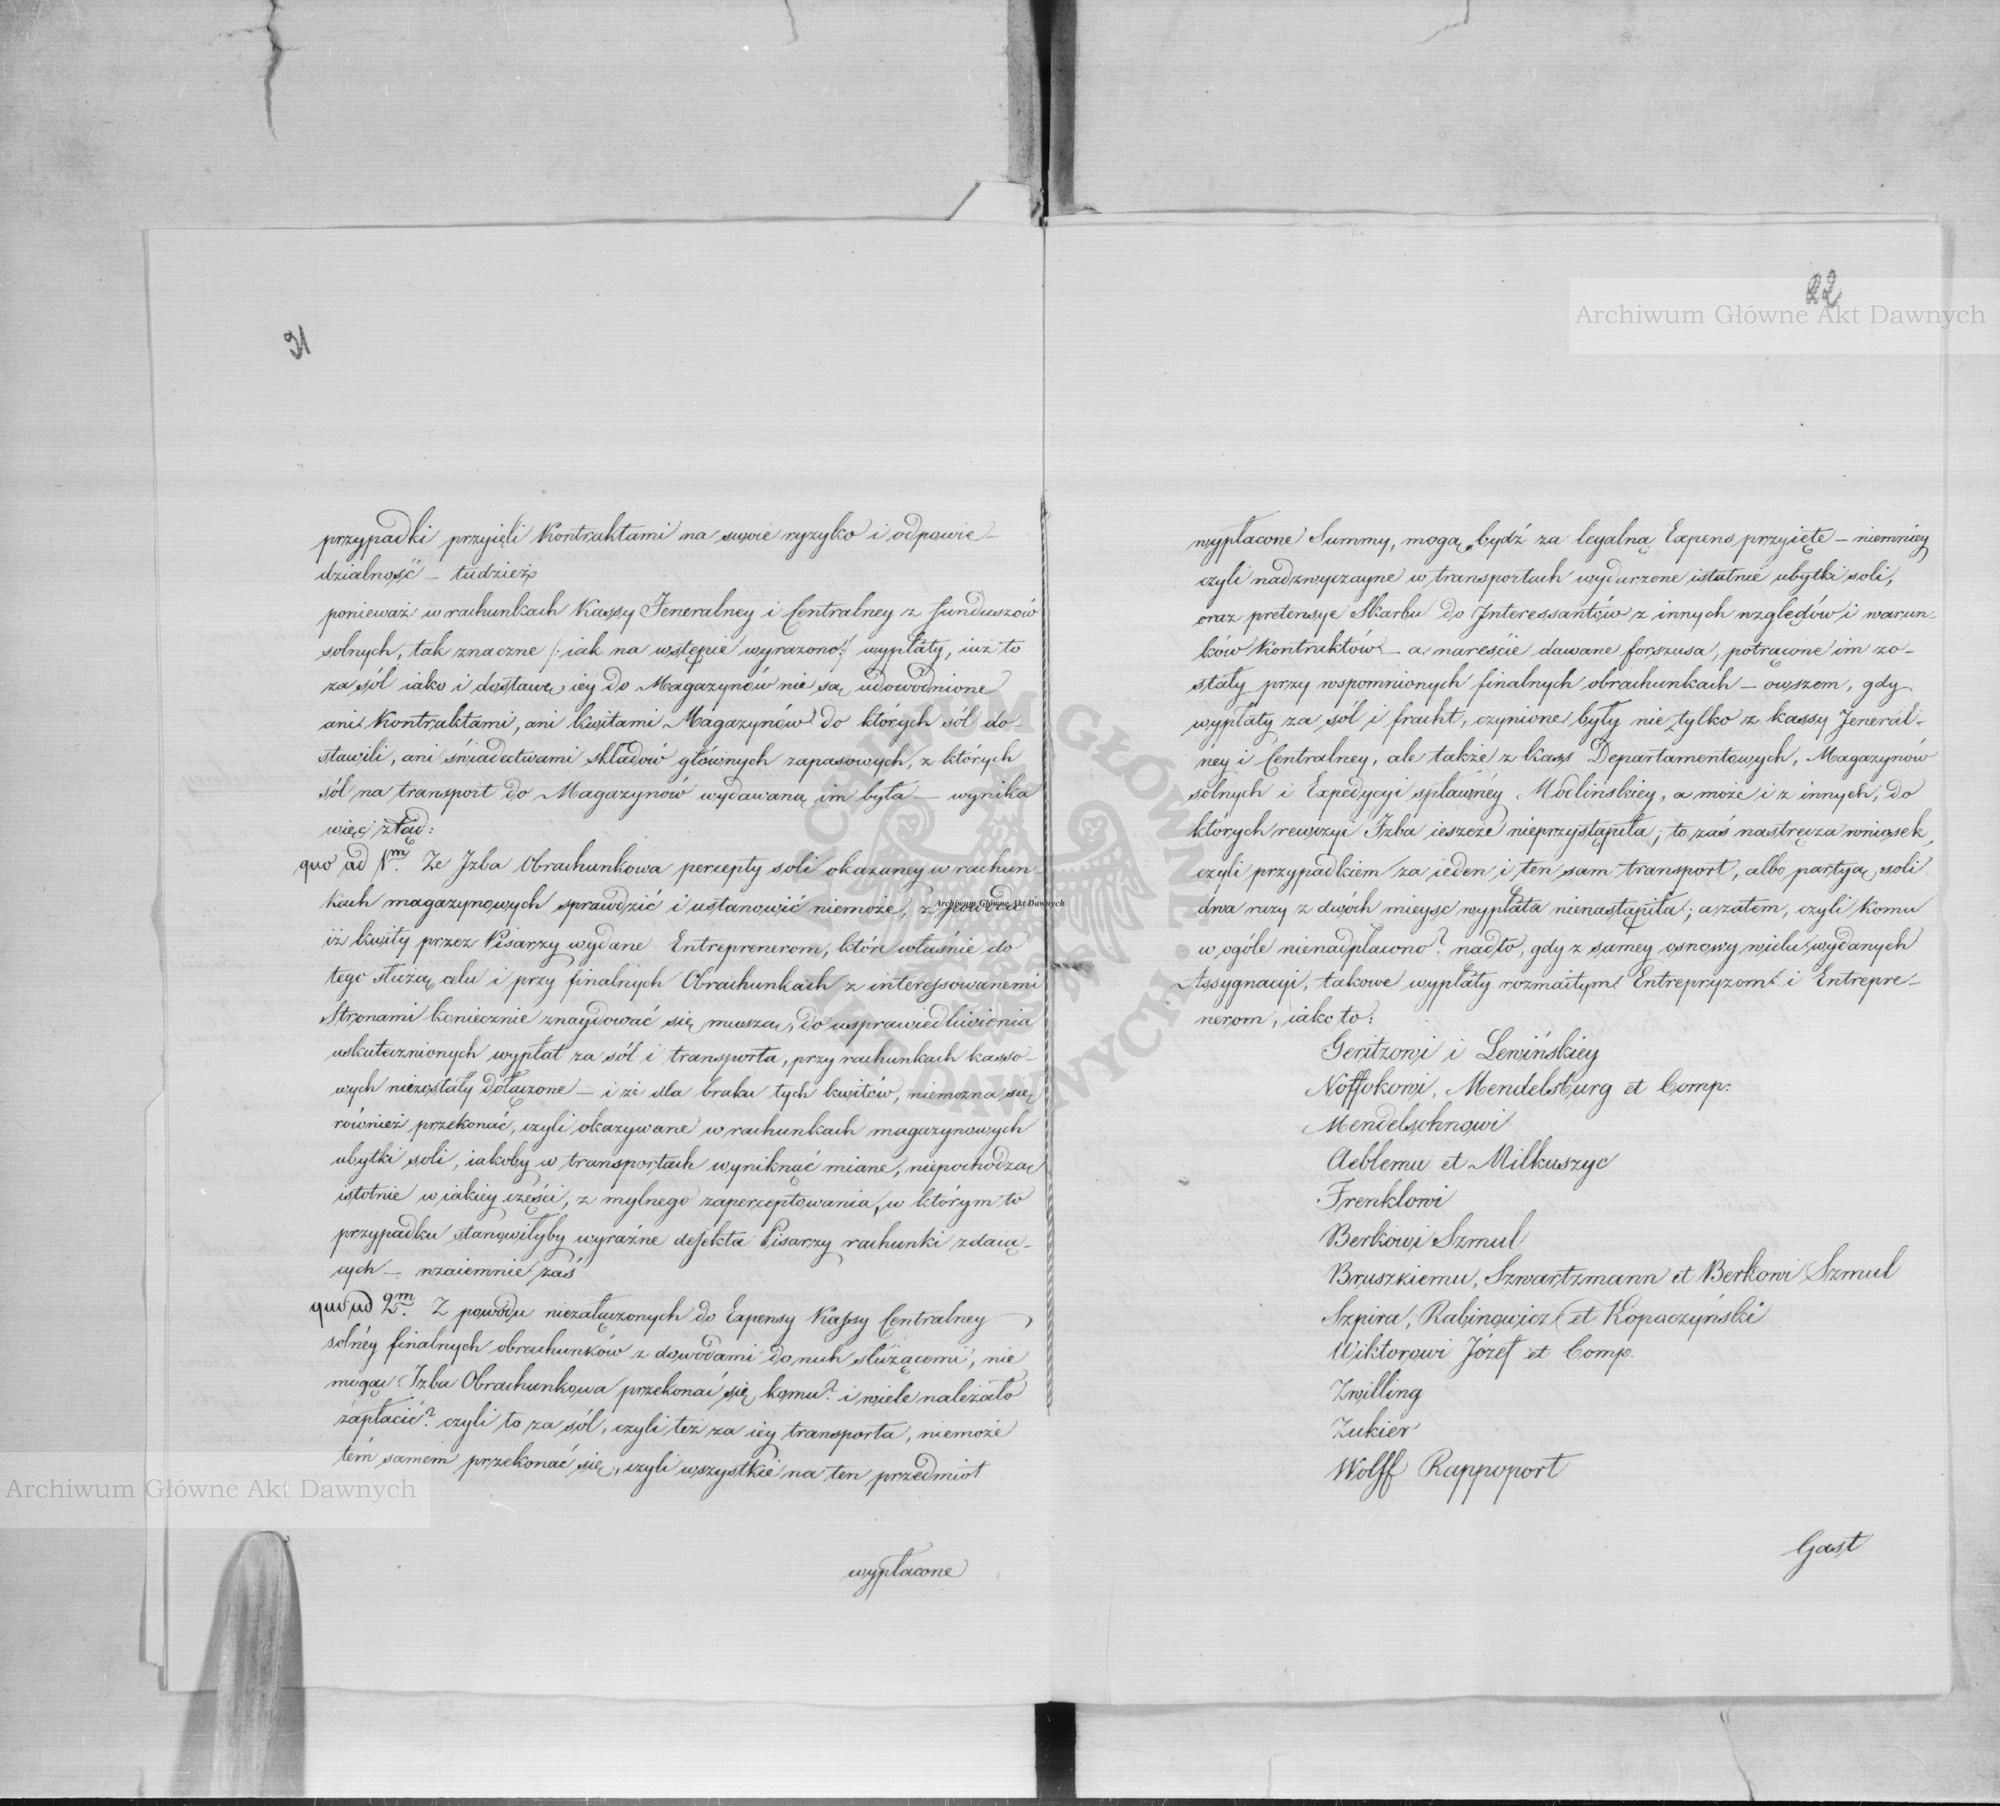 21
przypadki przyięli Kontraktami na swoie ryzyko i odpowie-
dzialność – tudzież
ponieważ w rachunkach Kassy Jeneralney i Centralney z funduszów
solnych, tak znaczne /: iak na wstępie wyrazono :/ wypłaty, iuż to
za sól iako i dostawę iey do Magazynów nie są udowodnione
ani Kontraktami, ani kwitami Magazynów do których sól do-
stawili, ani świadectwami składów głównych zapasowych, z których
sól na transport do Magazynów wydawaną im była – wynika
więc ztąd:
quo ad 1m. Że Izba Obrachunkowa percepty soli okazaney w rachun-
kach magazynowych sprawdzić i ustanowić niemoże, z powodu
iż kwity przez Pisarzy wydane Entreprenerom, które właśnie do
tego służą celu i przy finalnych Obrachunkach z interessowanemi
Stronami koniecznie znaydować się muszą, do usprawiedliwienia
uskutecznionych wypłat za sól i transporta, przy rachunkach kasso-
wych niezostały dołączone – i że dla braku tych kwitów, niemożna się
również przekonać, czyli okazywane w rachunkach magazynowych
ubytki soli, iakoby w transportach wyniknąć miane, niepochodzą
istotnie w iakiey części, z mylnego zaperceptowania, w którym to
przypadku stanowiłyby wyraźne defekta Pisarzy rachunki zdaią-
cych – wzaiemnie zaś
quo ad 2m. Z powodu niezałączonych do Expensy Kassy Centralney
solnéy finalnych obrachunków z dowodami do nich służącemi, nie
mogąc Izba Obrachunkowa przekonać się komu? i wiele należało
zapłacić? czyli to za sól, czyli też za iey transporta, niemoże
tém samém przekonać się, czyli wszystkie na ten przedmiot
wypłacone
22
wypłacone Summy, mogą bydź za legalną Expens przyięte – niemniéy
czyli nadzwyczayne w transportach wydarzone istotnie ubytki soli,
oraz pretensye Skarbu do Interessantów z innych względów i warun-
ków Kontraktów – a nareście dawane forszusa, potrącone im zo-
stały przy wspomnionych finalnych obrachunkach – owszem, gdy
wypłaty za sól i fracht, czynione były nie tylko z kassy Jeneral-
ney i Centralney, ale także z kass Departamentowych, Magazynów
solnych i Expedycyi spławnéy Modlińskiey, a może i z innych, do
których rewizyi Izba ieszcze nieprzystąpiła; to zaś nastręcza wniosek,
czyli przypadkiem za ieden i ten sam transport, albo partyą soli
dwa razy z dwóch mieysc wypłata nienastąpiła; a zatem, czyli komu
w ogóle nienadpłacono? nadto, gdy z samey osnowy wielu wydanych
Assygnacyi, takowe wypłaty rozmaitym Entrepryzom i Entrepre-
nerom, iako to:
Geritzowi i Lewińskiey
Noffokowi, Mendelsburg et Comp:
Mendelsohnowi
Aeblemu et Milkuszyc
Frenklowi
Berkowi Szmul
Bruszkiemu, Szwartzmann et Berkowi Szmul
Szpira, Rabinowicz et Kopaczyński
Wiktorowi Józef et Comp.
Zwilling
Zukier
Wolff Rappoport
Gast
Archiwum Główne Akt Dawnych
Archiwum Główne Akt Dawnych
Archiwum Główne Akt Dawnych
ARCHIWUM GŁÓWNE AKT DAWNYCH